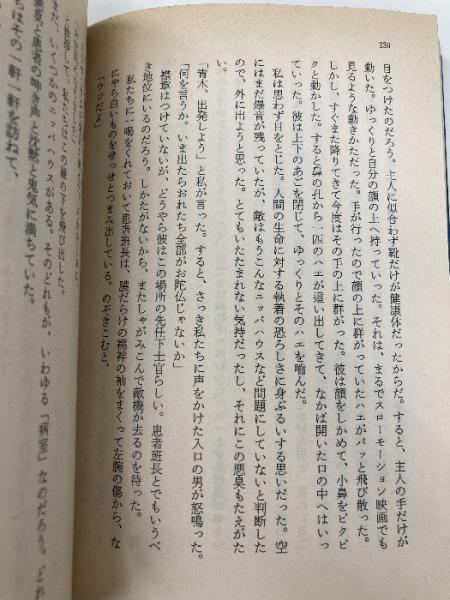 230
目をつけたのだろう。主人に似合わず靴だけが健康体だったからだ。すると、主人の手だけが
動いた。ゆっくりと自分の顔の上へ持っていった。それは、まるでスローモーション映画でも
見るような動きかただった。手が行ったので顔の上に群がっていたハエがパッと飛び散った。
しかし、すぐまた降りてきて今度はその手の上に群がった。彼は顔をしかめて、小鼻をピクピ
クと動かした。すると鼻の孔から一匹のハエが這い出してきて、なかば開いた口の中へはいっ
ていった。彼は上下のあごを閉じて、ゆっくりとそのハエを噛んだ。
私は思わず目をとじた。人間の生命に対する執着の恐ろしさに身ぶるいする思いだった。空
にはまだ爆音が残っていたが、敵はもうこんなニッパハウスなど問題にしていないと判断した
ので、外に出ようと思った。とてもいたたまれない気持だったし、それにこの悪臭もたえがた
い。
「青木、出発しよう」と私が言った。すると、さっき私たちに声をかけた入口の男が怒鳴った。
「何を言うか。いま出たらおれたち全部がお陀仏じゃないか」
襟章はつけていないが、どうやら彼はこの場所の先任下士官らしい。患者班長とでもいうべ
き地位にいるのだろう。しかたがないから、またしゃがみこんで敵機が去るのを待った。
私たちに一喝をくれておいて患者班長は、膿だらけの襦袢の袖をまくって左腕の傷から、な
にやら白いものをせっせとつまみ出している。のぞきこむと、
「ウジだよ」
と挨拶して、私たちはこの縁の下を飛び出した。
まだ、いくつかのニッパハウスがある。そのどれもが、いわゆる「病室」なのだろう。どれ
悪臭と患者の呻き声と沈黙と鬼気に満ちていた。
ちはその一軒一軒を訪ねて、